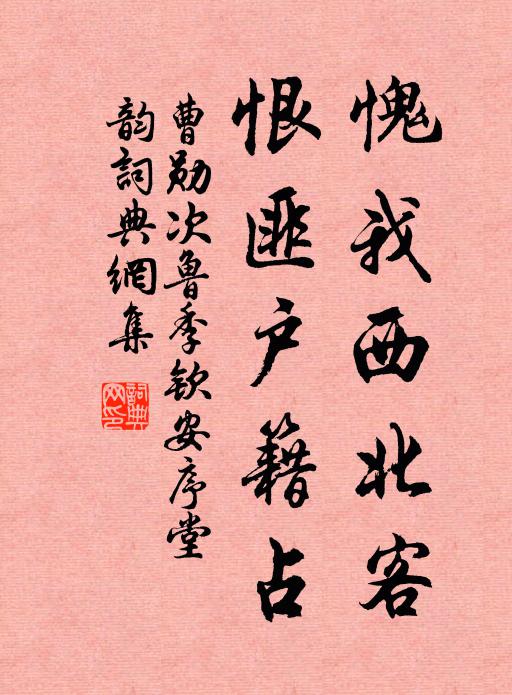 愧我西北客
恨匪户籍占
曹勋次鲁季钦安序堂
韵词典網集
詞典网印